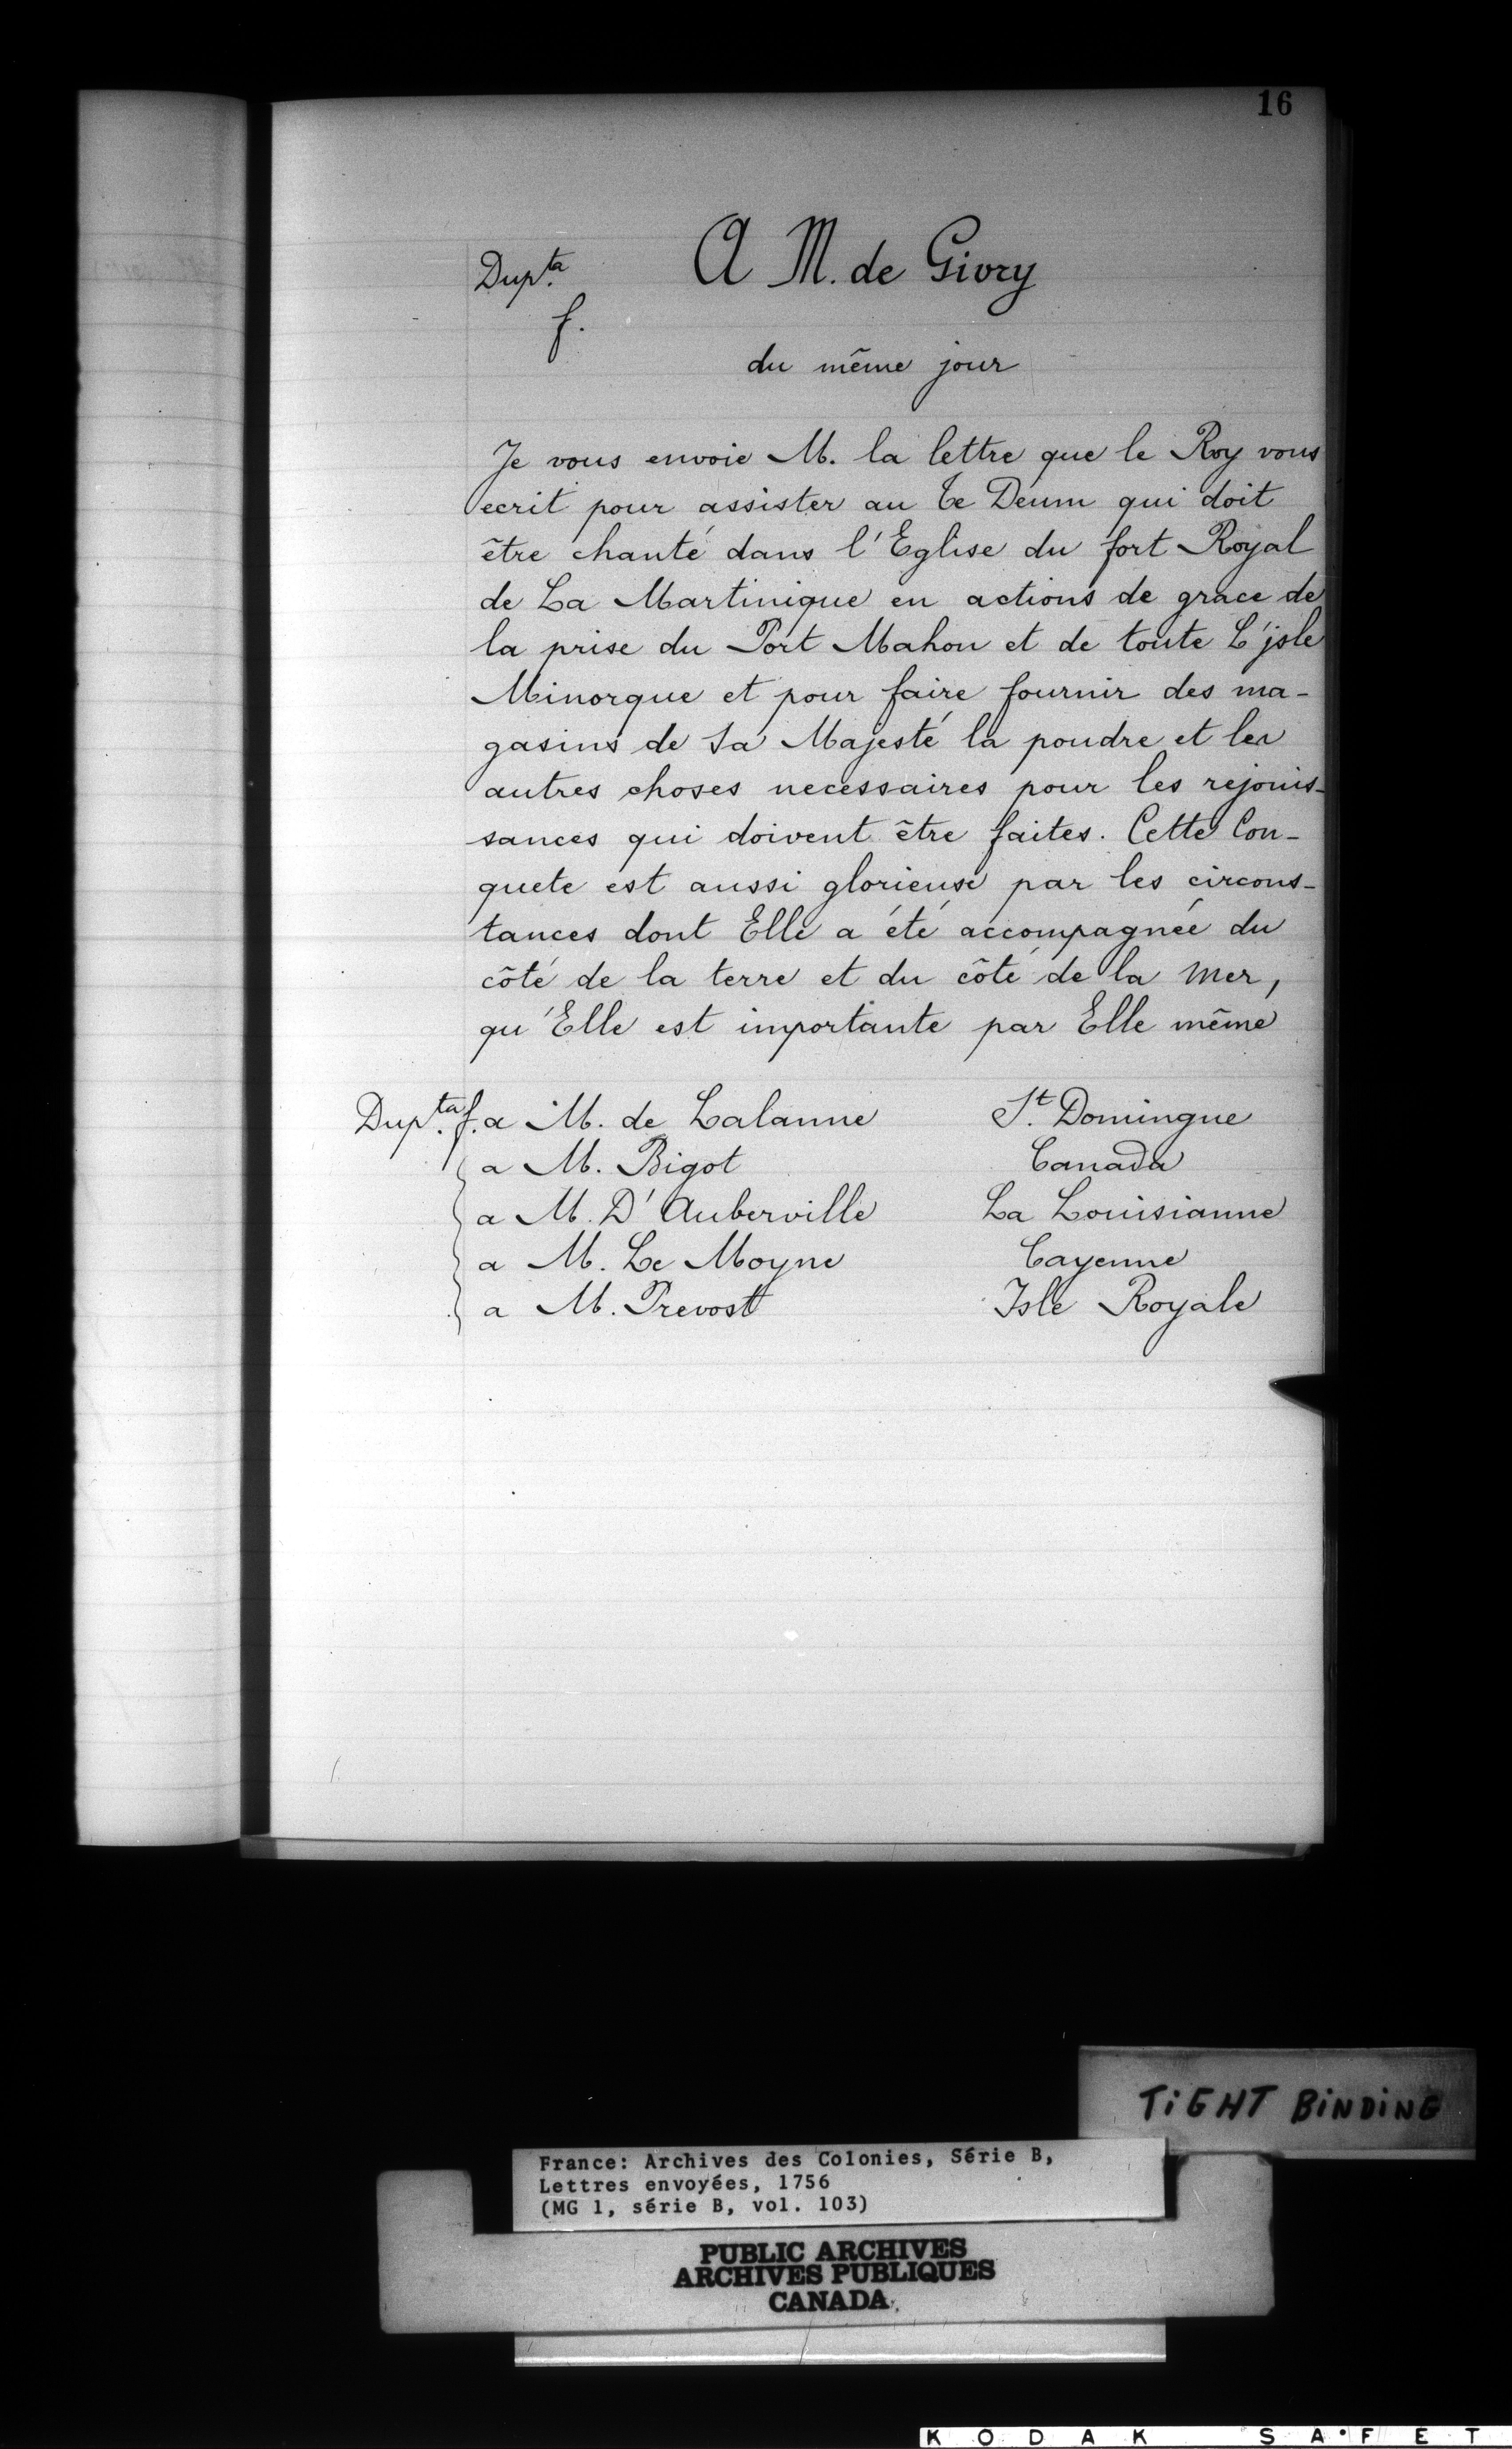 16
Dup.ta
A M. de Givry
f.
du même jour
Je vous envoie M. la lettre que le Roy vous
ecrit pour assister au Te Deum qui doit
être chanté dans l'Eglise du fort Royal
de La Martinique en actions de grace de
la prise du Port Mahon et de toute L'jsle
Minorque et pour faire fournir des ma-
gasins de Sa Majesté la poudre et les
autres choses necessaires pour les rejouis-
sances qui doivent être faites. Cette Con-
quete est aussi glorieuse par les circons-
tances dont Elle a été accompagnée du
côté de la terre et du côté de la Mer,
qu'Elle est importante par Elle même
Dup.ta f. a M. de Lalanne St. Domingue
a M. Bigot Canada
a M. D'Auberville La Louisianne
a M. Le Moyne Cayenne
a M. Prevost Isle Royale
TiGHT BiNDiNG
France: Archives des Colonies, Série B,
Lettres envoyées, 1756
(MG 1, série B, vol. 103)
PUBLIC ARCHIVES
ARCHIVES PUBLIQUES
CANADA
KODAK SAFET